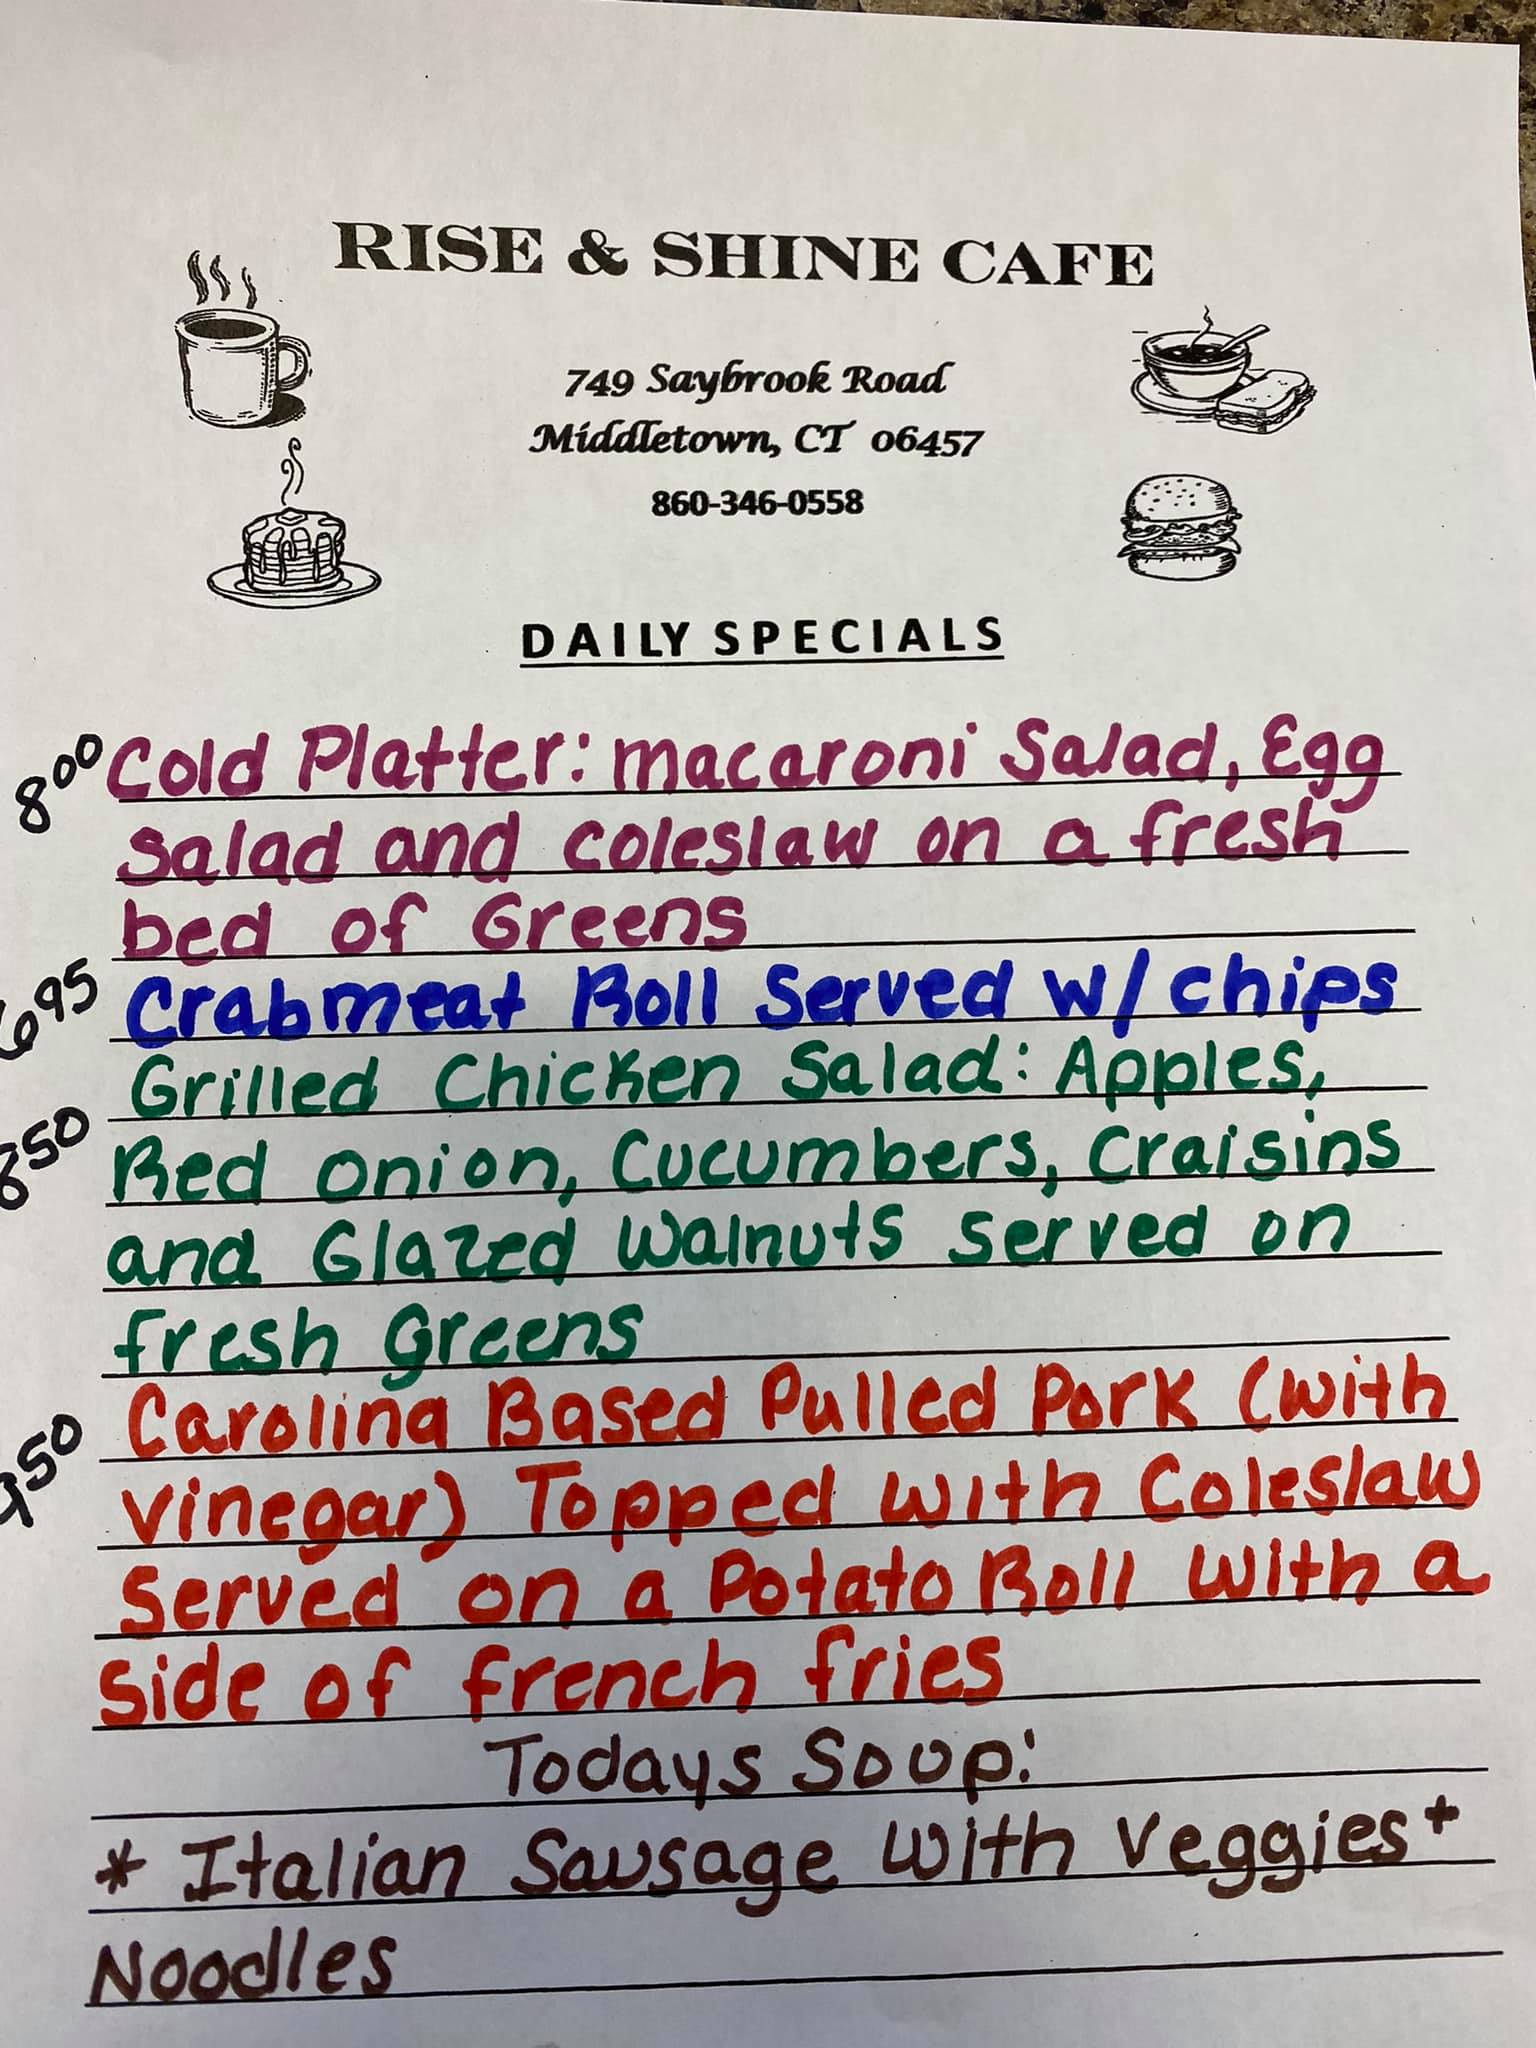 RISE & SHINE CAFE
749 Saybrook Road
Middletown, CT 06457
860-346-0558
DAILY SPECIALS
800 Cold Platter: macaroni Salad, Egg
Salad and coleslaw on a fresh
bed of Greens
695 Crabmeat Roll Served w/ chips
Grilled Chicken Salad: Apples,
850 Red onion, Cucumbers, Craisins
and Glazed Walnuts served on
fresh Greens
Carolina Based Pulled Pork (with
950 vinegar) Topped with Coleslaw
Served on a Potato Roll with a
side of french fries
Todays Soup:
* Italian Sausage with Veggies +
Noodles